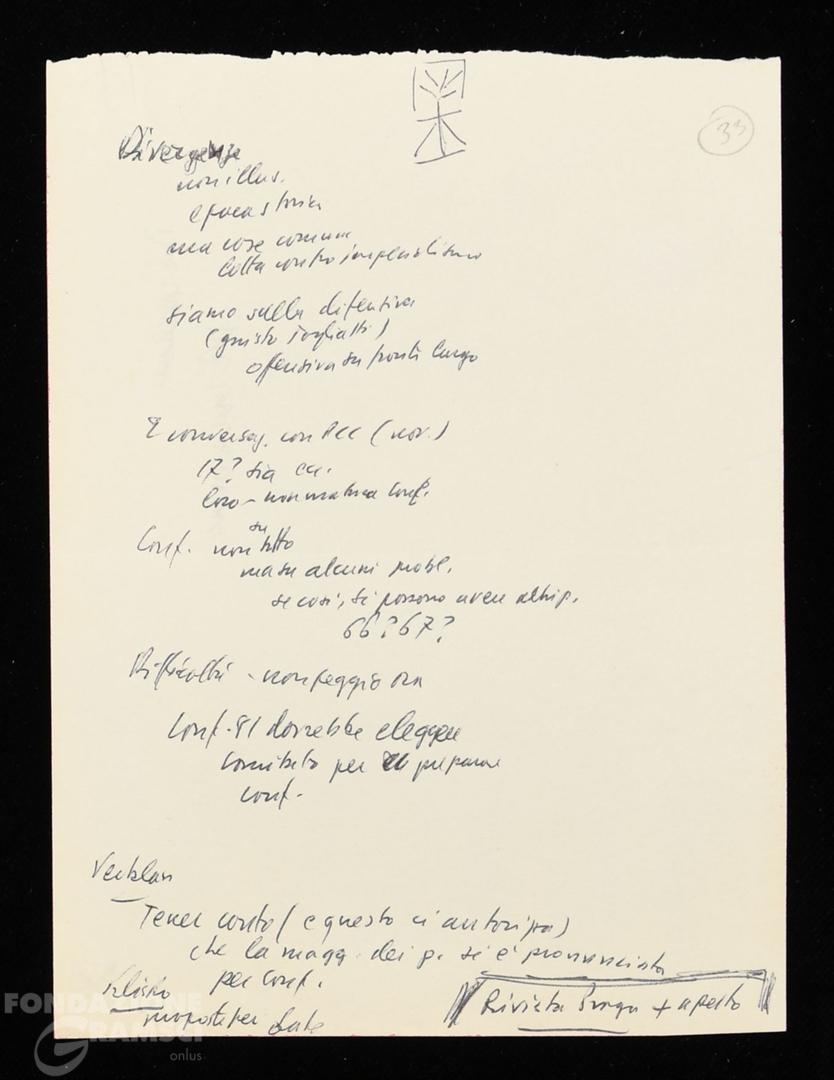 33
Divergenze
non illus.
epoca storica
ma cose comuni
lotta contro imperialismo
siamo sulla difensiva
(giusto Togliatti)
offensiva su fronte largo
conversaz. con PCC (nov.)
17? sia
loro - non matura conf.
Conf. non su tutto
ma su alcuni probl.
se così, si possono avere altri p.
66? 67?
Difficoltà - non peggio ora
Conf. 81 dovrebbe eleggere
comitato per preparare
conf.
Tener conto (e questo ci autorizza)
che la magg. dei p. si è pronunciata
per conf.
proposte per date
Rivista Praga + aperta
FONDAZIONE
GRAMSCI
onlus